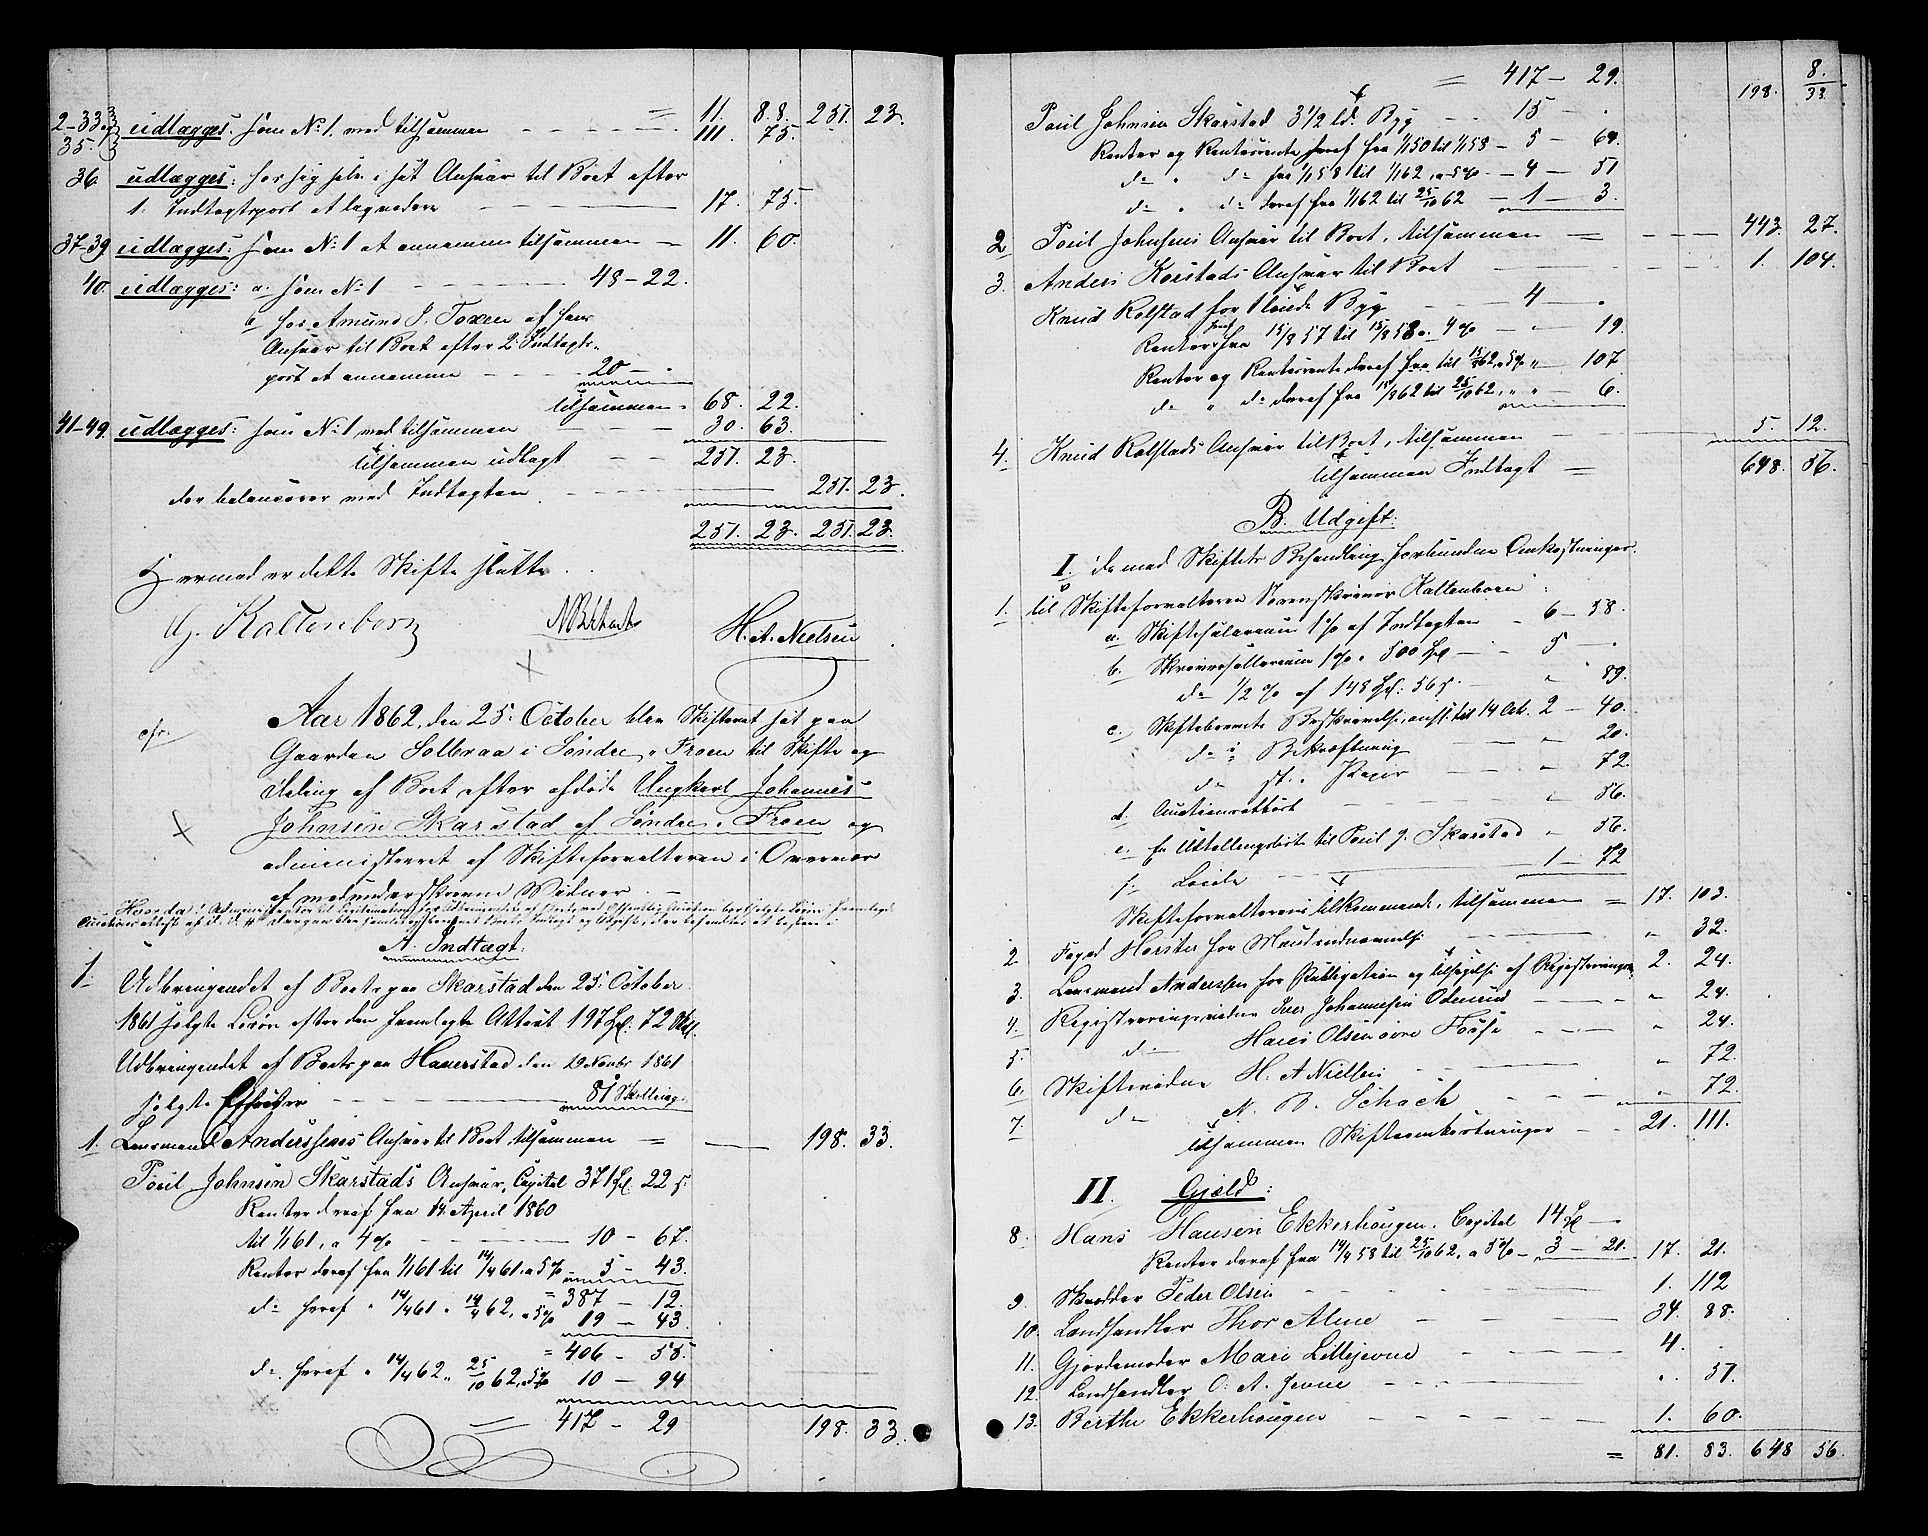 = 11. 88. 251. 23.
2-33 og udlægges: som No 1. med tilsammen 111. 75.
35.
36. udlægges: hos sig selv i sit Ansvar til Boet efter
1. Indtægtspost at lignedere 17. 75.
37-39 udlægges: som No 1 at annamme tilsammen 11. 60.
40. udlægges: a. som No 1 48-22.
b. hos Amund J. Toxen af hans
Ansvar til Boet efter 2. Indtægts-
post at annamme 20 - .
tilsammen 68. 22.
41-49. udlægges: som No 1 med tilsammen 30. 63.
tilsammen udlagt 251. 23.
der balancerer med Indtægten 251. 23.
251. 23. 251. 23.
Hermed er dette Skifte sluttet.
G. Kaltenborn H. A. Nielsen
cfr. Aar 1862, den 25. October blev Skifteret sat paa
Gaarden Solbraa i Søndre Froen til Skifte og
Deling af Boet efter afdøde Ungkarl Johannes
Johnsen Skarstad af Søndre Froen og
administreret af Skifteforvalteren i Overvær
af medunderskrevne Vidner. -
A. Indtægt:
1. Udbringendet af Boets paa Skarstad den 25. October
1861 solgte Løsøre efter den fremlagte Attest 197 Spd. 72 Skl.
Udbringendet af Boets paa Haverstad den 19 Novbr 1861
solgte Effecter 81 Skilling
1. Lensmand Anderssens Ansvar til Boet, tilsammen = 198. 33.
Poul Johnsen Skarstads Ansvar, Capital 371 Spd. 22 s
Renter deraf fra 14. April 1860
til 1/1 61, a 4% 10 - 67.
Renter deraf fra 1/1 61 til 14/4 61, a 5% 5 - 43.
= 387 - 12.
do heraf " 14/4 61 " 14/4 62, a 5% 19 - 43.
= 406 - 55.
do heraf " 14/4 62 " 25/10 62, a 5% 10 - 94
= 417 - 29 198. 33.
= 417 - 29. 198. 33.
8.
Poul Johnsen Skarstad 3 1/2 Td. Byg 15 - .
Renter og Rentesrente heraf fra 1/1 50 til 1/1 58 - 5 - 64.
do " do fra 1/1 58 til 1/1 62, a 5% - 4 - 51
do " do deraf fra 1/1 62 til 25/10 62 - 1 - 3.
2. Poul Johnsens Ansvar til Boet, tilsammen = 443. 27.
3. Anders Korstads Ansvar til Boet 1. 104.
Knud Rolstad for 1 Tønde Byg 4 - .
Renter heraf fra 15/8 57 til 15/8 58 a 4% " 19.
Renter og Rentesrente deraf fra til 15/8 62, a 5% " 107
do " do deraf fra 15/8 62 til 25/10 62, " " 6.
4. Knud Rolstads Ansvar til Boet, tilsammen 5. 12.
tilsammen Indtægt = 648. 56.
B. Udgift.
I. de med Skiftets Behandling forbundne Omkostninger.
1. til Skifteforvalteren Sorenskriver Kaltenborn:
a. Skiftesalarium 1% af Indtægten 6 - 58.
b. Skriversallarium 1% " 500 Spd 5 - .
do 1/2 % af 148 Spd: 56 s. " 89.
c. Skiftebrevets Beskrivelse, ansl. til 14 Ark. 2 - 40.
do " Bekræftning " 20.
do st. Papir " 72.
d. Auctionsattest " 56.
e. En Udtællingsliste til Poul J. Skarstad " 56.
f. Leide 1 - 72
Skifteforvalterens tilkommende, tilsammen = 17. 103.
2. Foged Horster for Mændsudnævnelse " 32.
3. Lensmand Anderssen for Rulligation og tilsigelse af Registrerings- 2. 24.
4. Registreringsvidne Iver Johannesen Odenrud " 24.
5. do Hans Olsen øvre Fosse " 24.
6. Skiftevidne H. A Nielsen " 72.
7. do N. B. Schach " 72.
tilsammen Skifteomkostninger 21. 111.
II. Gjæld:
8. Hans Hansen Ekkerhougen. Capital 14 Spd -
Renter deraf fra 14/4 58 til 25/10 62, a 5% - 3 - 21. 17. 21.
9. Skredder Peder Olsen 1. 112
10. Landhandler Thor Alme 34. 88.
11. Gjordemoder Mari Lillejevne 4. .
12. Landhandler O. A. Jevne . 51.
13. Berthe Ekkerhougen 1. 60.
= 81. 83. 648 56.